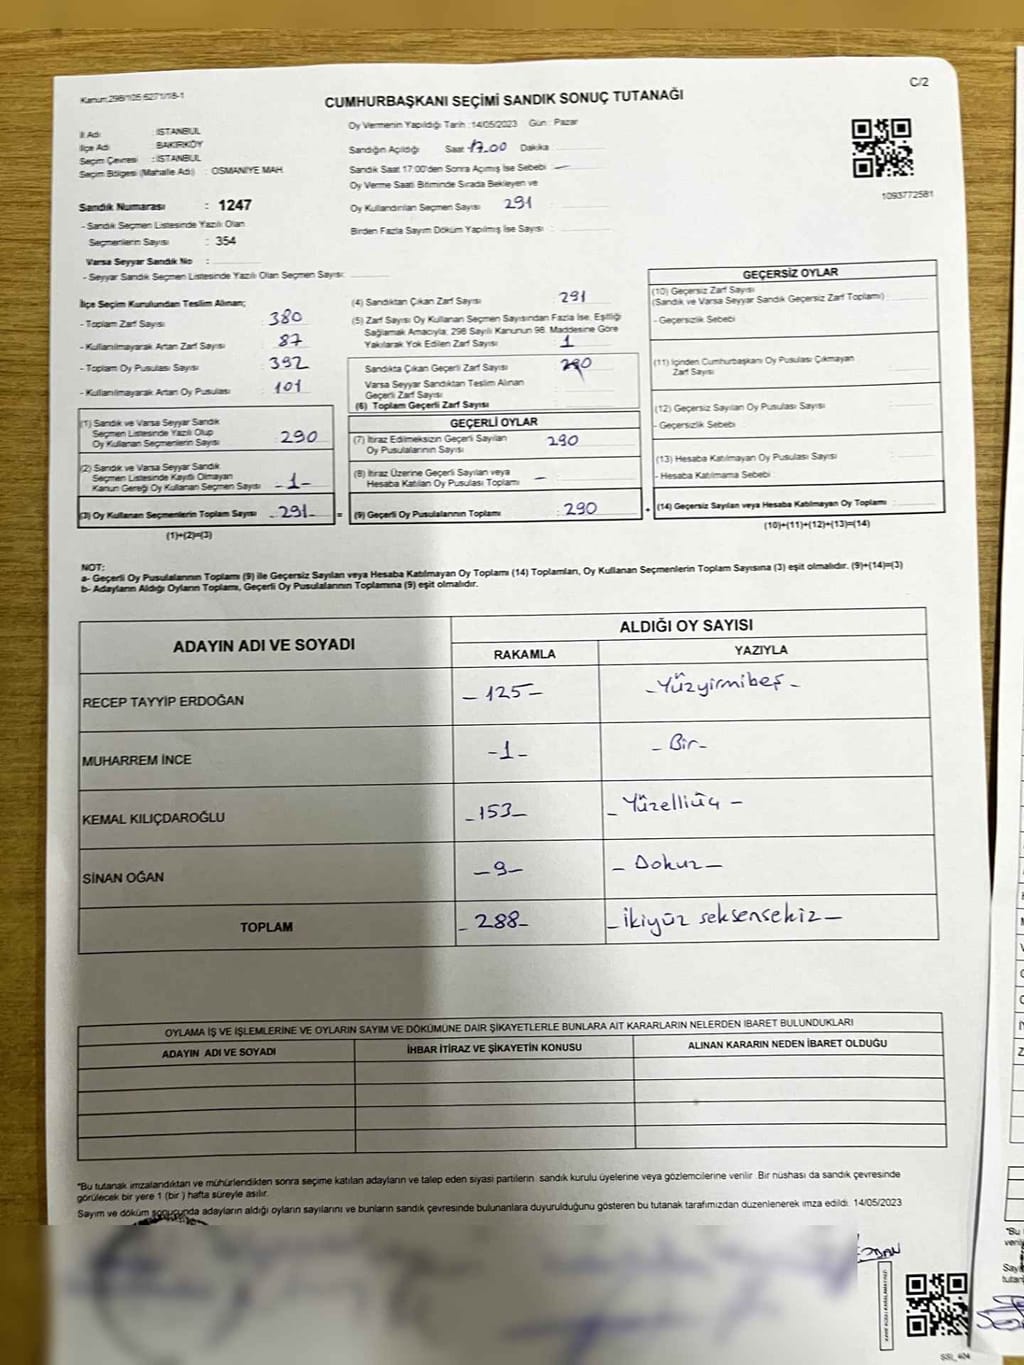 Kanun:298/105 6271/18-1
C/2
CUMHURBAŞKANI SEÇİMİ SANDIK SONUÇ TUTANAĞI
İl Adı : İSTANBUL
İlçe Adı : BAKIRKÖY
Seçim Çevresi : İSTANBUL
Seçim Bölgesi (Mahalle Adı) : OSMANİYE MAH.
Sandık Numarası : 1247
- Sandık Seçmen Listesinde Yazılı Olan
Seçmenlerin Sayısı : 354
Varsa Seyyar Sandık No :
- Seyyar Sandık Seçmen Listesinde Yazılı Olan Seçmen Sayısı:
Oy Vermenin Yapıldığı Tarih :14/05/2023 Gün : Pazar
Sandığın Açıldığı Saat 17.00 Dakika
Sandık Saat 17:00'den Sonra Açımış İse Sebebi —
Oy Verme Saati Bitiminde Sırada Bekleyen ve
Oy Kullandırılan Seçmen Sayısı 291
Birden Fazla Sayım Döküm Yapılmış İse Sayısı :
1093772581
İlçe Seçim Kurulundan Teslim Alınan;
- Toplam Zarf Sayısı 380
- Kullanılmayarak Artan Zarf Sayısı 87
- Toplam Oy Pusulası Sayısı 392
- Kullanılmayarak Artan Oy Pusulası 101
(1) Sandık ve Varsa Seyyar Sandık
Seçmen Listesinde Yazılı Olup
Oy Kullanan Seçmenlerin Sayısı 290
(2) Sandık ve Varsa Seyyar Sandık
Seçmen Listesinde Kayıtlı Olmayan
Kanun Gereği Oy Kullanan Seçmen Sayısı -1-
(3) Oy Kullanan Seçmenlerin Toplam Sayısı -291- =
(1)+(2)=(3)
(4) Sandıktan Çıkan Zarf Sayısı 291
(5) Zarf Sayısı Oy Kullanan Seçmen Sayısından Fazla İse, Eşitliği
Sağlamak Amacıyla; 298 Sayılı Kanunun 98. Maddesine Göre
Yakılarak Yok Edilen Zarf Sayısı 1
Sandıkta Çıkan Geçerli Zarf Sayısı 290
Varsa Seyyar Sandıktan Teslim Alınan
Geçerli Zarf Sayısı
(6) Toplam Geçerli Zarf Sayısı
GEÇERLİ OYLAR
(7) İtiraz Edilmeksizin Geçerli Sayılan
Oy Pusulalarının Sayısı 290
(8) İtiraz Üzerine Geçerli Sayılan veya
Hesaba Katılan Oy Pusulası Toplamı —
(9) Geçerli Oy Pusulalarının Toplamı : 290 +
GEÇERSİZ OYLAR
(10) Geçersiz Zarf Sayısı
(Sandık ve Varsa Seyyar Sandık Geçersiz Zarf Toplamı)
- Geçersizlik Sebebi
(11) İçinden Cumhurbaşkanı Oy Pusulası Çıkmayan
Zarf Sayısı
(12) Geçersiz Sayılan Oy Pusulası Sayısı
- Geçersizlik Sebebi
(13) Hesaba Katılmayan Oy Pusulası Sayısı
- Hesaba Katılmama Sebebi
(14) Geçersiz Sayılan veya Hesaba Katılmayan Oy Toplamı
(10)+(11)+(12)+(13)=(14)
NOT:
a- Geçerli Oy Pusulalarının Toplamı (9) ile Geçersiz Sayılan veya Hesaba Katılmayan Oy Toplamı (14) Toplamları, Oy Kullanan Seçmenlerin Toplam Sayısına (3) eşit olmalıdır. (9)+(14)=(3)
b- Adayların Aldığı Oyların Toplamı, Geçerli Oy Pusulalarının Toplamına (9) eşit olmalıdır.
ADAYIN ADI VE SOYADI
ALDIĞI OY SAYISI
RAKAMLA YAZIYLA
RECEP TAYYİP ERDOĞAN -125- -Yüzyirmibeş-
MUHARREM İNCE -1- -Bir-
KEMAL KILIÇDAROĞLU -153- -Yüzelliüç-
SİNAN OĞAN -9- -Dokuz-
TOPLAM -288- -İkiyüz seksensekiz-
OYLAMA İŞ VE İŞLEMLERİNE VE OYLARIN SAYIM VE DÖKÜMÜNE DAİR ŞİKAYETLERLE BUNLARA AİT KARARLARIN NELERDEN İBARET BULUNDUKLARI
ADAYIN ADI VE SOYADI İHBAR İTİRAZ VE ŞİKAYETİN KONUSU ALINAN KARARIN NEDEN İBARET OLDUĞU
*Bu tutanak imzalandıktan ve mühürlendikten sonra seçime katılan adayların ve talep eden siyasi partilerin sandık kurulu üyelerine veya gözlemcilerine verilir. Bir nüshası da sandık çevresinde
görülecek bir yere 1 (bir) hafta süreyle asılır.
Sayım ve döküm sonucunda adayların aldığı oyların sayılarını ve bunların sandık çevresinde bulunanlara duyurulduğunu gösteren bu tutanak tarafımızdan düzenlenerek imza edildi. 14/05/2023